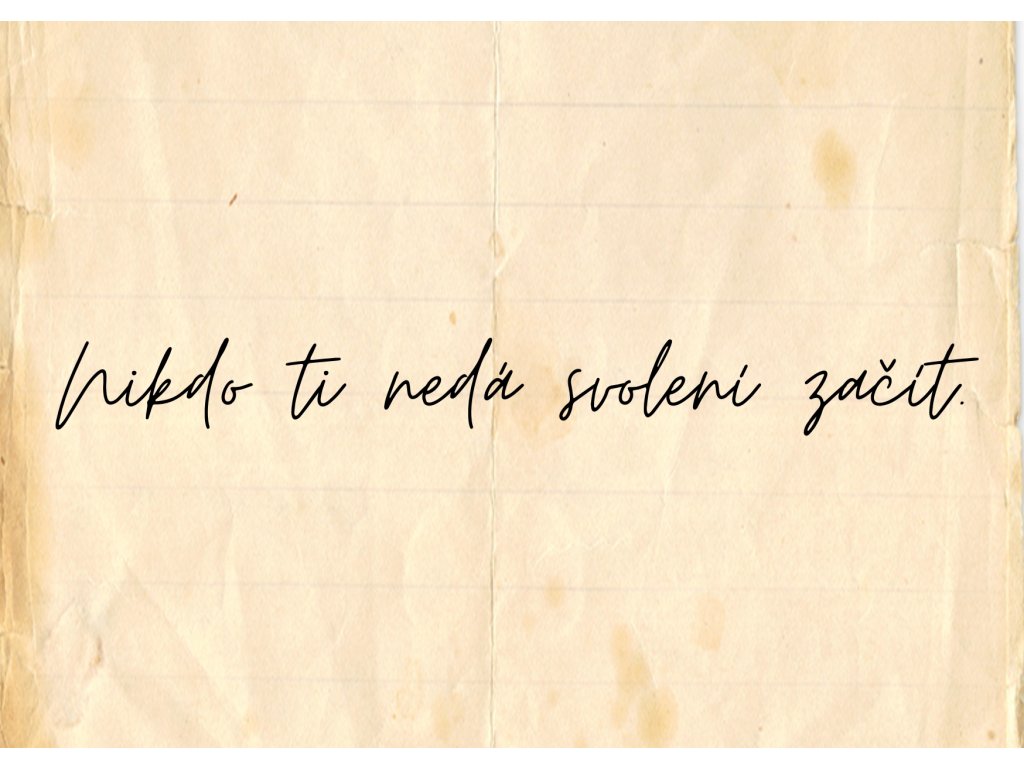 Nikdo ti nedá svolení začít.